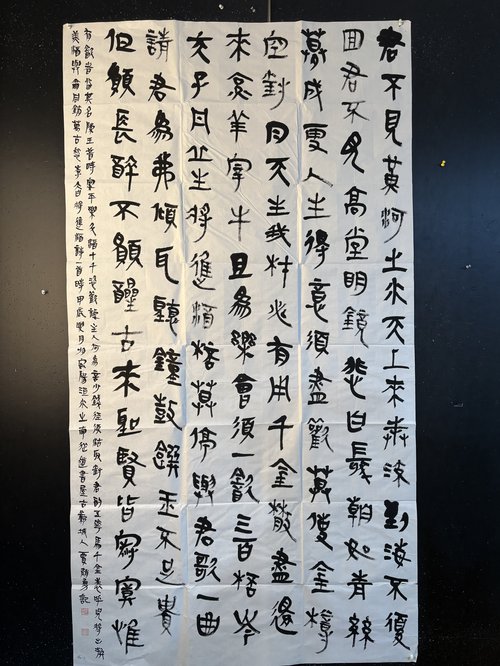 君不見黃河之水天上來奔流到海不復
回君不見高堂明鏡悲白髮朝如青絲
暮成雪人生得意須盡歡莫使金樽
空對月天生我材必有用千金散盡還
來烹羊宰牛且為樂會須一飲三百杯岑
夫子丹丘生將進酒杯莫停與君歌一曲
請君為我傾耳聽鐘鼓饌玉不足貴
但願長醉不願醒古來聖賢皆寂寞惟
有飲者留其名陳王昔時宴平樂斗酒十千恣歡謔主人何為言少錢徑須沽取對君酌五花馬千金裘呼兒將出換
美酒與爾同銷萬古愁李白將進酒詩一首時甲辰